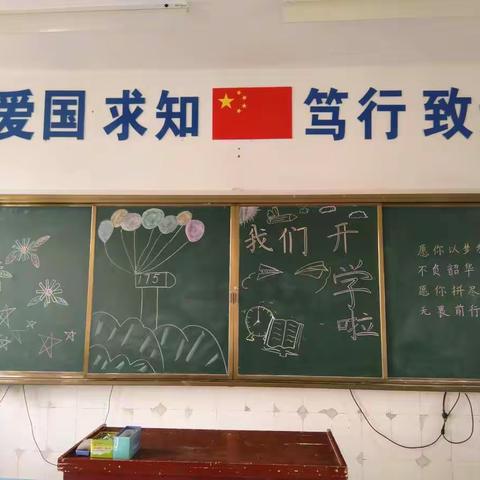 爱国 求知 笃行 致
175
我们开
学
啦
愿你以梦
不负韶华
愿你拼尽
无畏前行